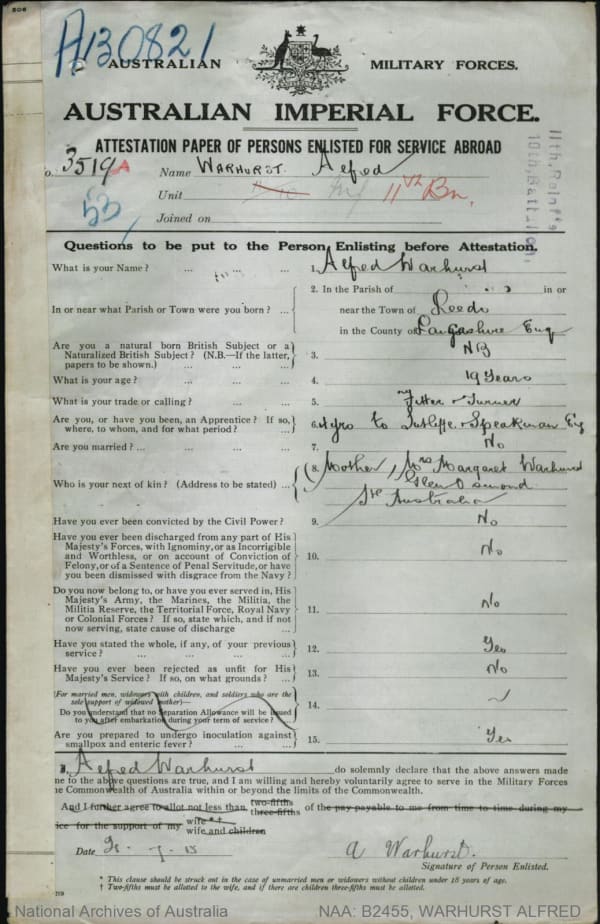 506
A130821
AUSTRALIAN MILITARY FORCES.
AUSTRALIAN IMPERIAL FORCE.
ATTESTATION PAPER OF PERSONS ENLISTED FOR SERVICE ABROAD
o. 3519A Name WARHURST Alfred
Unit Inf 11th Bn.
53
11th, Reinfts
10th, Battalion,
Joined on
Questions to be put to the Person Enlisting before Attestation.
What is your Name? ... ... ... 1. Alfred Warhurst
In or near what Parish or Town were you born? ... 2. In the Parish of in or
near the Town of Leeds
in the County of Eng
Are you a natural born British Subject or a
Naturalized British Subject? (N.B.—If the latter,
papers to be shown.) ... ... 3. NB
What is your age? ... ... ... 4. 19 Years
What is your trade or calling? ... ... 5. Fitter & Turner
Are you, or have you been, an Apprentice? If so,
where, to whom, and for what period? ... 6. 4 yrs to Sutliffe & Speakman Eng
Are you married? ... ... ... 7. No
Who is your next of kin? (Address to be stated) ... 8. Mother, Mrs Margaret Warhurst
Glen Osmond
Sth Australia
Have you ever been convicted by the Civil Power? 9. No
Have you ever been discharged from any part of His
Majesty's Forces, with Ignominy, or as Incorrigible
and Worthless, or on account of Conviction of
Felony, or of a Sentence of Penal Servitude, or have
you been dismissed with disgrace from the Navy? 10. No
Do you now belong to, or have you ever served in, His
Majesty's Army, the Marines, the Militia, the
Militia Reserve, the Territorial Force, Royal Navy
or Colonial Forces? If so, state which, and if not
now serving, state cause of discharge ... 11. No
Have you stated the whole, if any, of your previous
service? ... ... ... 12. Yes
Have you ever been rejected as unfit for His
Majesty's Service? If so, on what grounds? ... 13. No
(For married men, widowers with children, and soldiers who are the
sole support of widowed mother)—
Do you understand that no Separation Allowance will be issued
to you after embarkation during your term of service? 14.
Are you prepared to undergo inoculation against
smallpox and enteric fever? ... ... 15. Yes
I, Alfred Warhurst do solemnly declare that the above answers made
me to the above questions are true, and I am willing and hereby voluntarily agree to serve in the Military Forces
he Commonwealth of Australia within or beyond the limits of the Commonwealth.
And I further agree to allot not less than two-fifths three-fifths of the pay payable to me from time to time during my
ice for the support of my wife*† wife and children
Date 7 - 15 A Warhurst.
Signature of Person Enlisted.
* This clause should be struck out in the case of unmarried men or widowers without children under 18 years of age.
† Two-fifths must be allotted to the wife, and if there are children three-fifths must be allotted.
National Archives of Australia NAA: B2455, WARHURST ALFRED